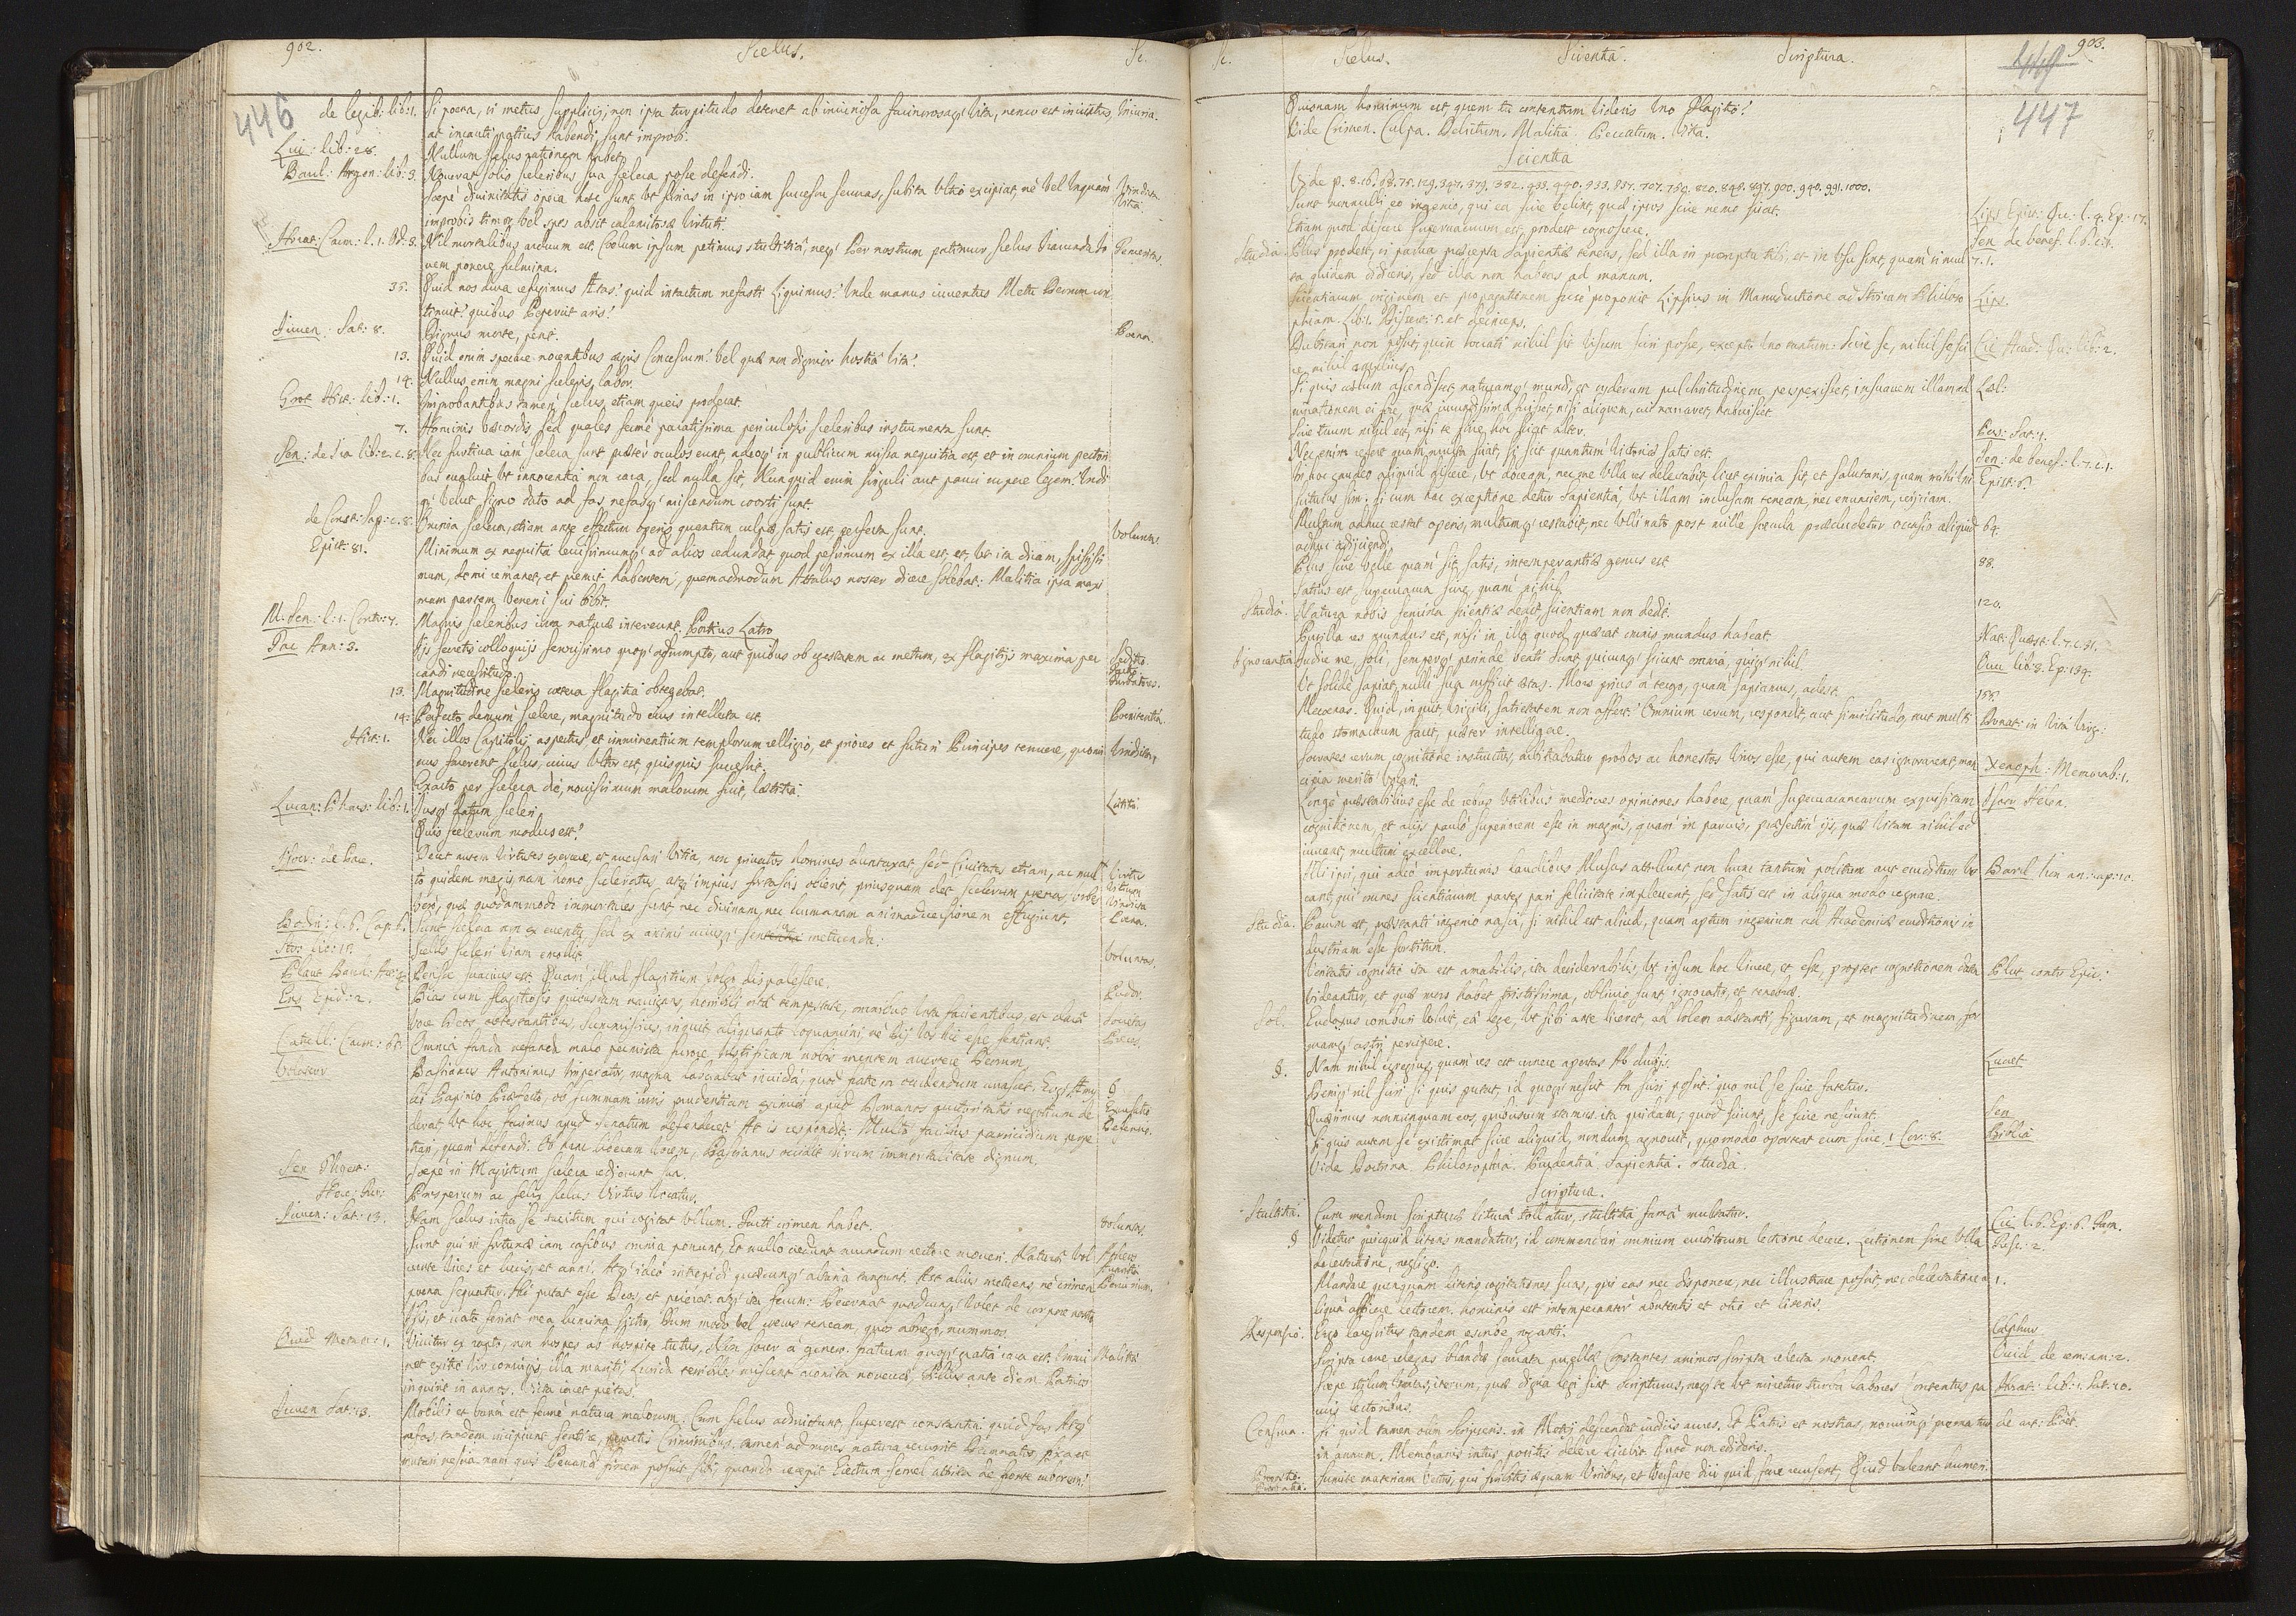 902.
Scelus.
Sc.
446
de legib: lib: 1. Si poena, si metus supplicij, non ipsa turpitudo deterret ab iniuriosa facinorosaq; vita, nemo est iniustus, Iniuria.
at incauti potius habendi sunt improbi.
Liui: lib: 28. Nullum scelus rationem habet.
Barcl: Argen: lib: 3. sceleribus sua scelera posse defendi.
Saepè diuinitatis opera haec sunt, vt poenas in ipso iam successu securas, subita vltio excipiat, nè vel vnquàm Vindicta.
improbis timor, vel spes absit calamitosae virtuti. Vita.
Horat: Carm: l. 1. Od: 3. Nil mortalibus arduum est, Coelum ipsum petimus stultitiâ, neq; Per nostrum patimur scelus Iracunda Io Temeritas.
uem ponere fulmina.
35. Quid nos dura refugimus Aetas? quid intactum nefasti Liquimus? Vnde manus iuuentus Metu Deorum con
tinuit? quibus Pepercit aris?
Iuuen: Sat: 8. Dignus morte, perit. Poena.
13. Quid enim speciale nocentibus aegris Concessum? vel quae non dignior hostia vita?
14. Nullus enim magni sceleris labor.
Grot Hist: lib: 1. Improbantibus tamen scelus, etiam queis proderat.
7. Hominis vaecordis, sed quales fermè paratissima periculosis sceleribus instrumenta sunt.
Sen: de Ira lib: 2. c. 8. Nec furtiua iam scelera sunt, praeter oculos eunt, adeoq; in publicum missa nequitia est, et in omnium pectori
bus eualuit, vt innocentia non rara, sed nulla sit. Nunquid enim singuli aut pauci rupere legem? Vndi
q; velut signo dato ad fas nefasq; miscendum coorti sunt.
de Const: Sap: c. 8. Omnia scelera, etiam ante effectum operis, quantum culpae satis est, perfecta sunt. Voluntas.
Epist: 81. Minimum ex nequitia leuissimumq; ad alios redundat, quod pessimum ex illa est, et, vt ita dicam, spissisi
mum, domi remanet, et premit habentem, quemadmodum Attalus noster dicere solebat: Malitia ipsa maxi
mam partem veneni sui bibit.
M. Sen: l: 1. Contr: 7. Magnis sceleribus iura naturae intereunt. Portius Latro
Tac Ann: 3. Ijs secretis colloquijs ferocissimo quoq; adsumpto, aut quibus ob egestatem ac metum, ex flagitijs maxima pec Seditio.
candi necessitudo. Turbatores.
13. Magnitudine sceleris caetera flagitia obtegebat.
14: Perfecto demùm scelere, magnitudo eius intellecta est. Poenitentia.
Hist: 1. Nec illos Capitolij aspectus et imminentium templorum religio, et priores et futuri Principes terruere, quomi
nus facerent scelus, cuius vltor est, quisquis successit. Vindicta.
Exacto per scelera die, nouissimum malorum fuit, laetitia. Laetitia.
Lucan: Phars: lib: 1. Iusq; datum sceleri.
Quis scelerum modus est?
Isocr: de Pac. Decet autem virtutes exercere, et auersari vitia, non priuatos homines duntaxat, sed Ciuitates etiam, ac mul Virtus
tò quidem magis, nam homo sceleratus, atq; impius fortassis obierit, priusquam det scelerum poenas, vrbes Vitium
verò, quae quodammodo immortales sunt, nec diuinam, nec humanam animaduersionem effugiunt. Vindicta
Bodin: l. 6. Cap: 6. Sunt scelera non ex euentu, sed ex animi cuiusq; metienda. Poena.
Scelus sceleri viam Voluntas.
Plaut Pensae suauius est. Quam illud flagitium volgo dispalescere. Pudor.
Bias cum flagitiosis quibusdam nauigans, horribili ortâ tempestate, omnibus vota facientibus, et clarâ Societas
voce Deos obtestantibus, Summissius, inquit, aliquanto loquamini nè Dij vos hic esse sentiant. Preces.
Catull: Carm: 62. Omnia fanda nefanda malo permista furore Iustificam nobis mentem auertere Deorum.
Bassianus Antoninus Imperator, magna laborabat inuidia, quod
Papinio Praefecto, ob summam iuris prudentiam eximiae apud Romanos autoritatis negotium de Excusatio
derat vt hoc facinus apud Senatum defenderet. At is respondit: Multò facilius parricidium perpe Defensio.
trari, quam defendi. Ob hanc liberam vocem, Bassianus occidit virum immortalitate dignum.
Sen Thyest: Saepè in Magistrum scelera redierunt sua.
Herc: Fur: Prosperum ac felix scelus Virtus vocatur.
Iuuen: Sat: 13. Nam scelus intra se tacitum qui cogitat vllum, Facti crimen habet. Voluntas.
Sunt qui in fortunae iam casibus omnia ponunt, Et nullo credunt mundum rectore moueri. Naturâ vol
uente vices et lucis, et anni, Atq; ideò intrepidi quaecunq; altaria tangunt. Est alius metuens nè crimen
poena sequatur. Hic putat esse Deos, et peierat, atq; ita secum: Decernat quodcunq; volet de corpore nostro Periurium.
Isis, et irato feriat mea lumina sistro, Dum modo vel caecus teneam, quos abnego, nummos.
Ouid Metam: 1. Viuitur ex rapto, non hospes ab hospite tutus, Non socer à genero, fratrum quoq; gratia rara est. Immi Malitia
net exitio vir coniugis, illa mariti, Lurida terribiles miscent aconita nouercae, Filius ante diem Patrios
inquirit in annos. Victa iacet pietas.
Iuuen Sat: 13. Mobilis et varia est fermè natura malorum. Cum scelus admittunt, superest constantia: quid fas Atq;
nefas, tandem incipiunt sentire, peractis Criminibus, tamen ad mores natura recurrit Damnatos, fixa et
mutari nescia. nam quis Peccandi finem posuit sibi, quando recepit Eiectum semel attrita de fronte ruborem?
Sc.
Scelus.
Scientia.
Scriptura.
903.
447
Quisnam hominum est quem tu contentum videris Vno Flagitio?
Vide Crimen. Culpa. Delictum. Malitia. Peccatum. Vita.
Scientia
Sunt nonnulli eo ingenio, qui ea scire velint, quae ipsos scire nemo sciat. Lips Epist: Qu: l. 4. Ep: 17.
Etiam quod discere superuacuum est, prodest cognoscere. Sen de benef. l. 6. c. 1.
Studia. Plus prodest, si pauca praecepta sapientiae teneas, sed illa in promptu tibi, et in vsu sint, quàm si mul 7. 1.
ta quidem didiceris, sed illa non habeas ad manum.
Scientiarum originem et propagationem fusè proponit Lipsius in Manuductione ad Stoicam Philoso Lips.
phiam. Lib: 1. Dissert: 5. et deinceps.
Dubitari non posse, quin Socrati nihil sit visum sciri posse, excepto vno tantum: scire se, nihil se sci Cic Acad: Qu: lib: 2.
re, nihil ampliùs.
Si quis caelum ascendisset, naturamq; mundi, et syderum pulchritudinem perspexisset, insuauem illam ad Lael:
mirationem ei fore, quae iucundissima fuisset, nisi aliquem, cui narraret, habuisset.
Scire tuum nihil est, nisi te scire, hoc sciat alter. Pers: Sat: 1.
Nec enim refert quàm multa sciat, si scit quantum victoriae satis est. Sen: de benef: l. 7. c. 1.
In hoc gaudeo aliquid discere, vt doceam, nec me vlla res delectabit, licet eximia sit, et salutaris, quam mihi vni Epist: 6.
sciturus sim. Si cum hac exceptione detur sapientia, vt illam inclusam teneam, nec enunciem, reijciam.
Multum adhuc restat operis, multumq; restabit, nec vlli nato post mille saecula praecludetur occasio aliquid 64.
adhuc adijciendi.
Plus scire velle quàm sit satis, intemperantiae genus est. 88.
Satius est superuacua scire, quàm nihil.
Studia. Natura nobis semina scientiae dedit, scientiam non dedit. 120.
Pusilla res mundus est, nisi in illo quod quaerat omnis mundus habeat. Nat: Quaest: l. 7. c. 31.
Ignorantia.
Vt solidè sapiat, nulli sua sufficit aetas. Mors prius à tergo, quàm sapiamus, adest.
Mecoenas. Quid, inquit, Virgili, satietatem non affert? Omnium rerum, respondit, aut similitudo, aut multi Donat: in Vita Virg:
tudo stomachum facit, praeter intelligere.
Socrates rerum cognitione instructos, arbitrabatur probos ac honestos viros esse, qui autem eas ignorarent, man Xenoph: Memorab: 1.
cipia meritò vocari.
Longè praestabilius esse de rebus vtilibus mediocres opiniones habere, quàm superuacanearum exquisitam Isocr Helen.
cognitionem, et alijs paulò superiorem esse in magnis, quàm in paruis, praesertim ijs, quae vitam nihil ad
iuuent, multum excellere.
Illi ipsi, qui adeò importunis laudibus Musas attollunt, non hunc tantùm politum aut eruditum vo Barcl Icon an: cap: 10.
cant, qui omnes scientiarum partes, pari felicitate impleuerit, sed satis est in aliqua modo regnare.
Studia. Parum est, praestanti ingenio nasci, si nihil est aliud, quàm aptum ingenium ad Academicae eruditionis in
dustriam esse sortitum.
Veritatis cognitio ita est amabilis, ita desiderabilis, vt ipsum hoc viuere, et esse, propter cognitionem data Plut contr Epic:
videantur, et quae mors habet tristissima, obliuio sunt, ignoratio, et tenebrae.
Sol. Eudoxus comburi voluit, eâ lege, vt sibi ante liceret, ad Solem adstanti, figuram, et magnitudinem, for
mamq; astri percipere.
§. Nam nihil egregius, quàm res est cernere apertas Ab dubijs. Lucret
Deniq; nil sciri si quis putat, id quoq; nescit An sciri possit, quo nil se scire fatetur.
Quaerimus nonnunquam eos, quibuscum stamus, ita quidam, quod sciunt, se scire nesciunt. Sen
Si quis autem se existimat scire aliquid, nondum agnouit, quomodo oporteat eum scire. 1 Cor: 8. Biblia
Vide Doctrina. Philosophia. Prudentia. Sapientia. Studia.
Scriptura.
Stultitia. Cum mendum scripturae liturâ tollatur, stultitia famâ multatur. Cic l. 6. Ep: 6. Fam.
§ Videtur quicquid literis mandatur, id commendari omnium eruditorum lectione decere. Lectionem sine vlla Tusc: 2.
delectatione, negligo.
Mandare quenquam literis cogitationes suas, qui eas nec disponere, nec illustrare possit, nec delectatione a 1.
liqua allicere lectorem, hominis est intemperanter abutentis et otio et literis.
Responsio. Ergo lacessitus tandem escribe roganti.
Scripta caue relegas blandae seruata puellae Constantes animos scripta relecta mouent. Ouid de rem: am: 2.
Saepe stylum vertas, iterum, quae digna legi sint Scripturus, neq; te vt miretur turba labores Contentus pa Horat: lib: 1. Sat: 10.
ucis lectoribus.
Censura. Si quid tamen olim Scripseris, in Metij descendat iudicis aures, Et Patris et nostras, nonumq; prematur de art: Poët.
in annum. Membranis intus positis delere licebit Quod non edideris.
Sumite materiam vestris, qui scribitis aequam Viribus, et versate diu quid ferre recusent, Quid valeant humeri.